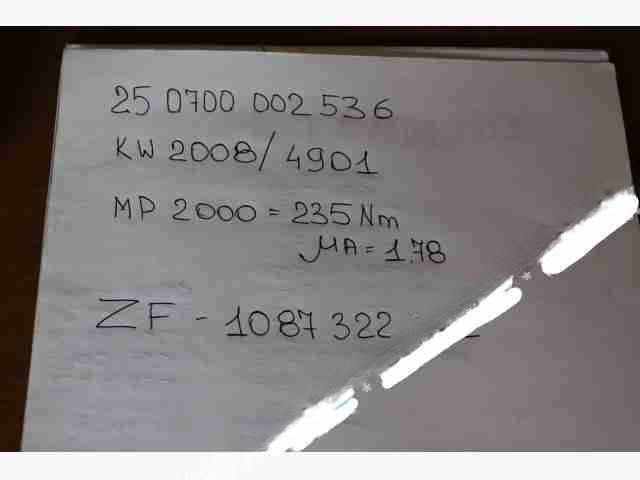 25 0700 002 536
KW 2008/4901
MP 2000 = 235 Nm
μA = 1.78
ZF - 1087 322